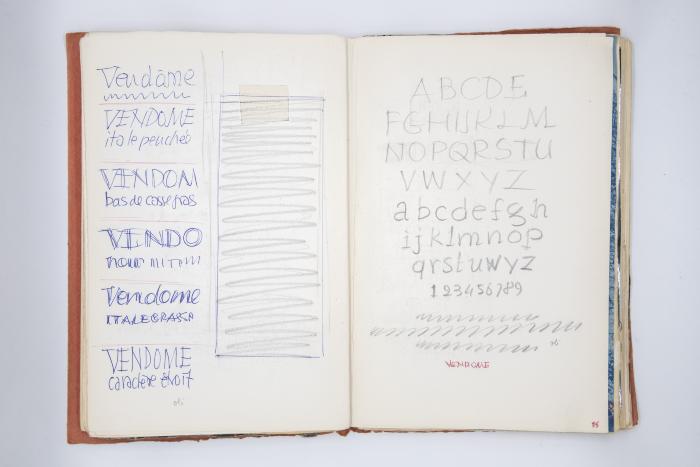 Vendôme
VENDOME
itale penchée
VENDOM
bas de casse gras
VENDO
Vendome
ITALE GRASSE
VENDOME
caractère étroit
oli
ABCDE
FGHIJKLM
NOPQRSTU
VWXYZ
abcdefgh
ijklmnop
qrstuwyz
123456789
oli
VENDOME